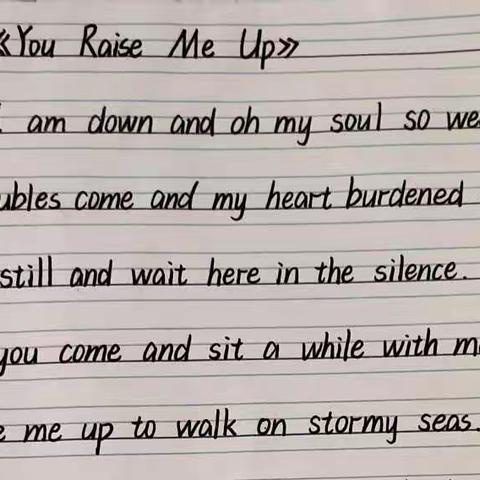 《You Raise Me Up》
am down and oh my soul so we
ubles come and my heart burdened
still and wait here in the silence.
you come and sit a while with m
e me up to walk on stormy seas.